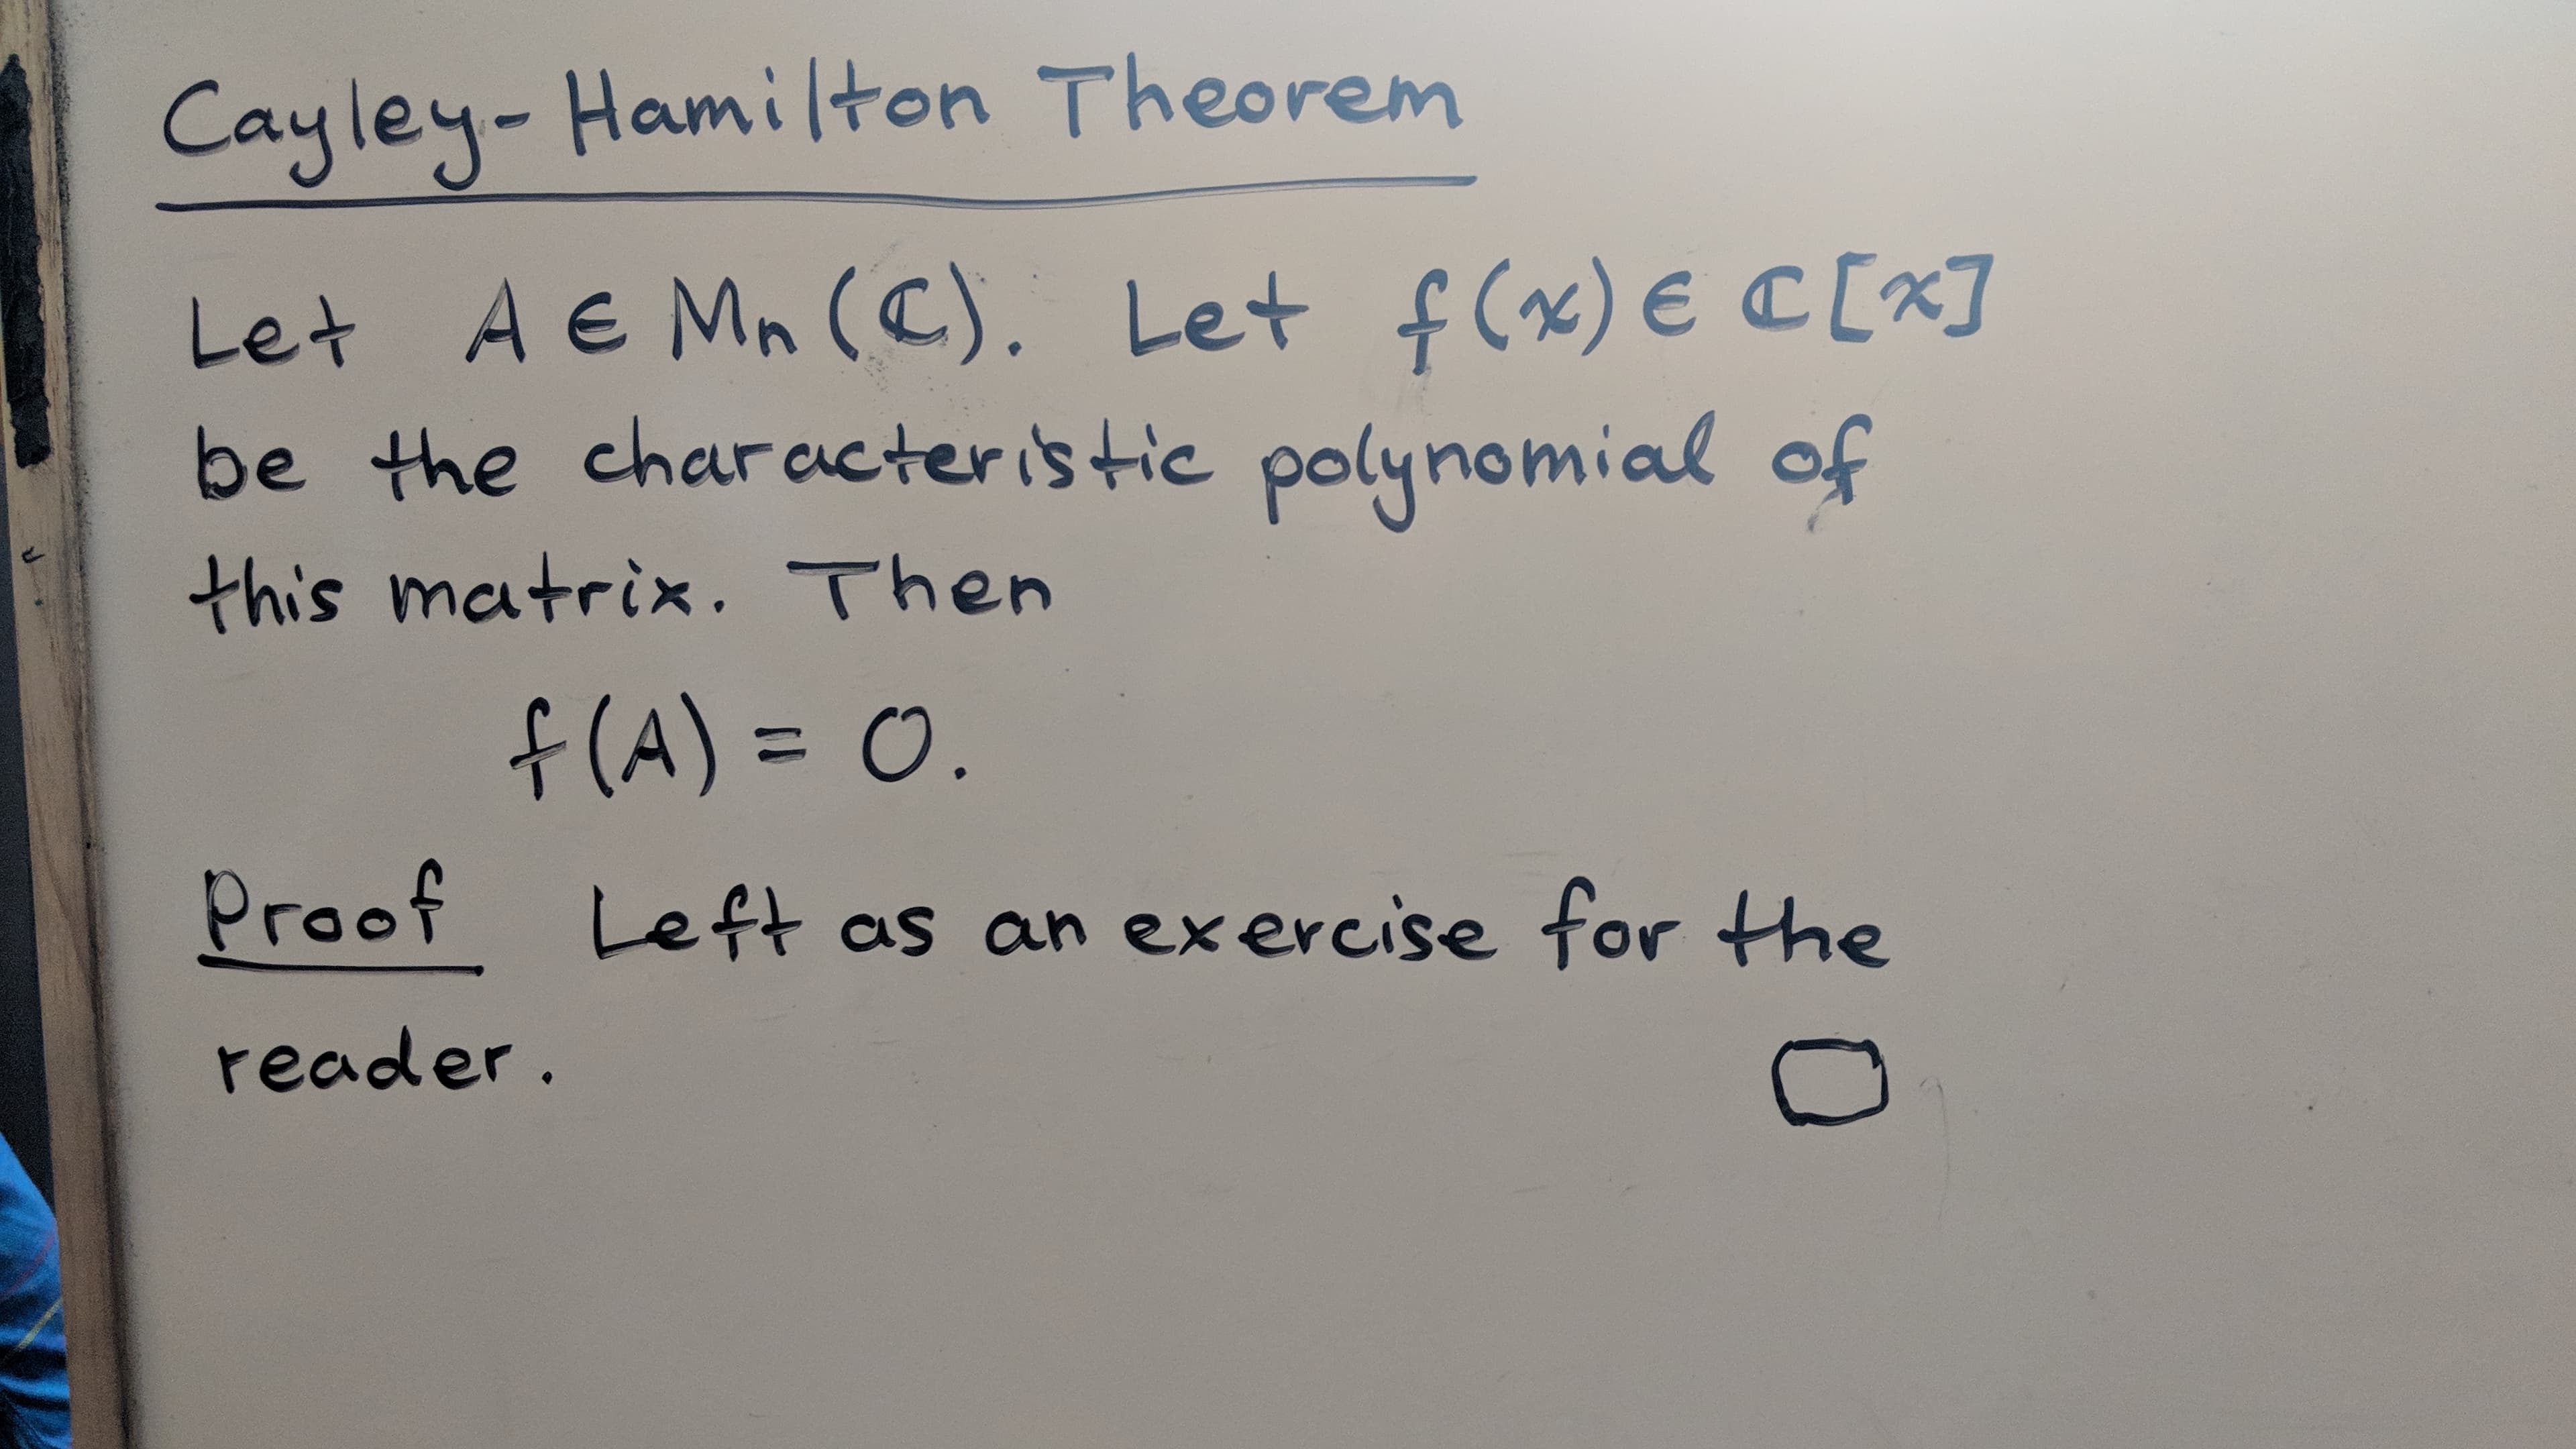 Cayley-Hamilton Theorem
Let A ∈ Mn (ℂ). Let f(x) ∈ ℂ[x]
be the characteristic polynomial of
this matrix. Then
f(A) = 0.
Proof Left as an exercise for the
reader. □